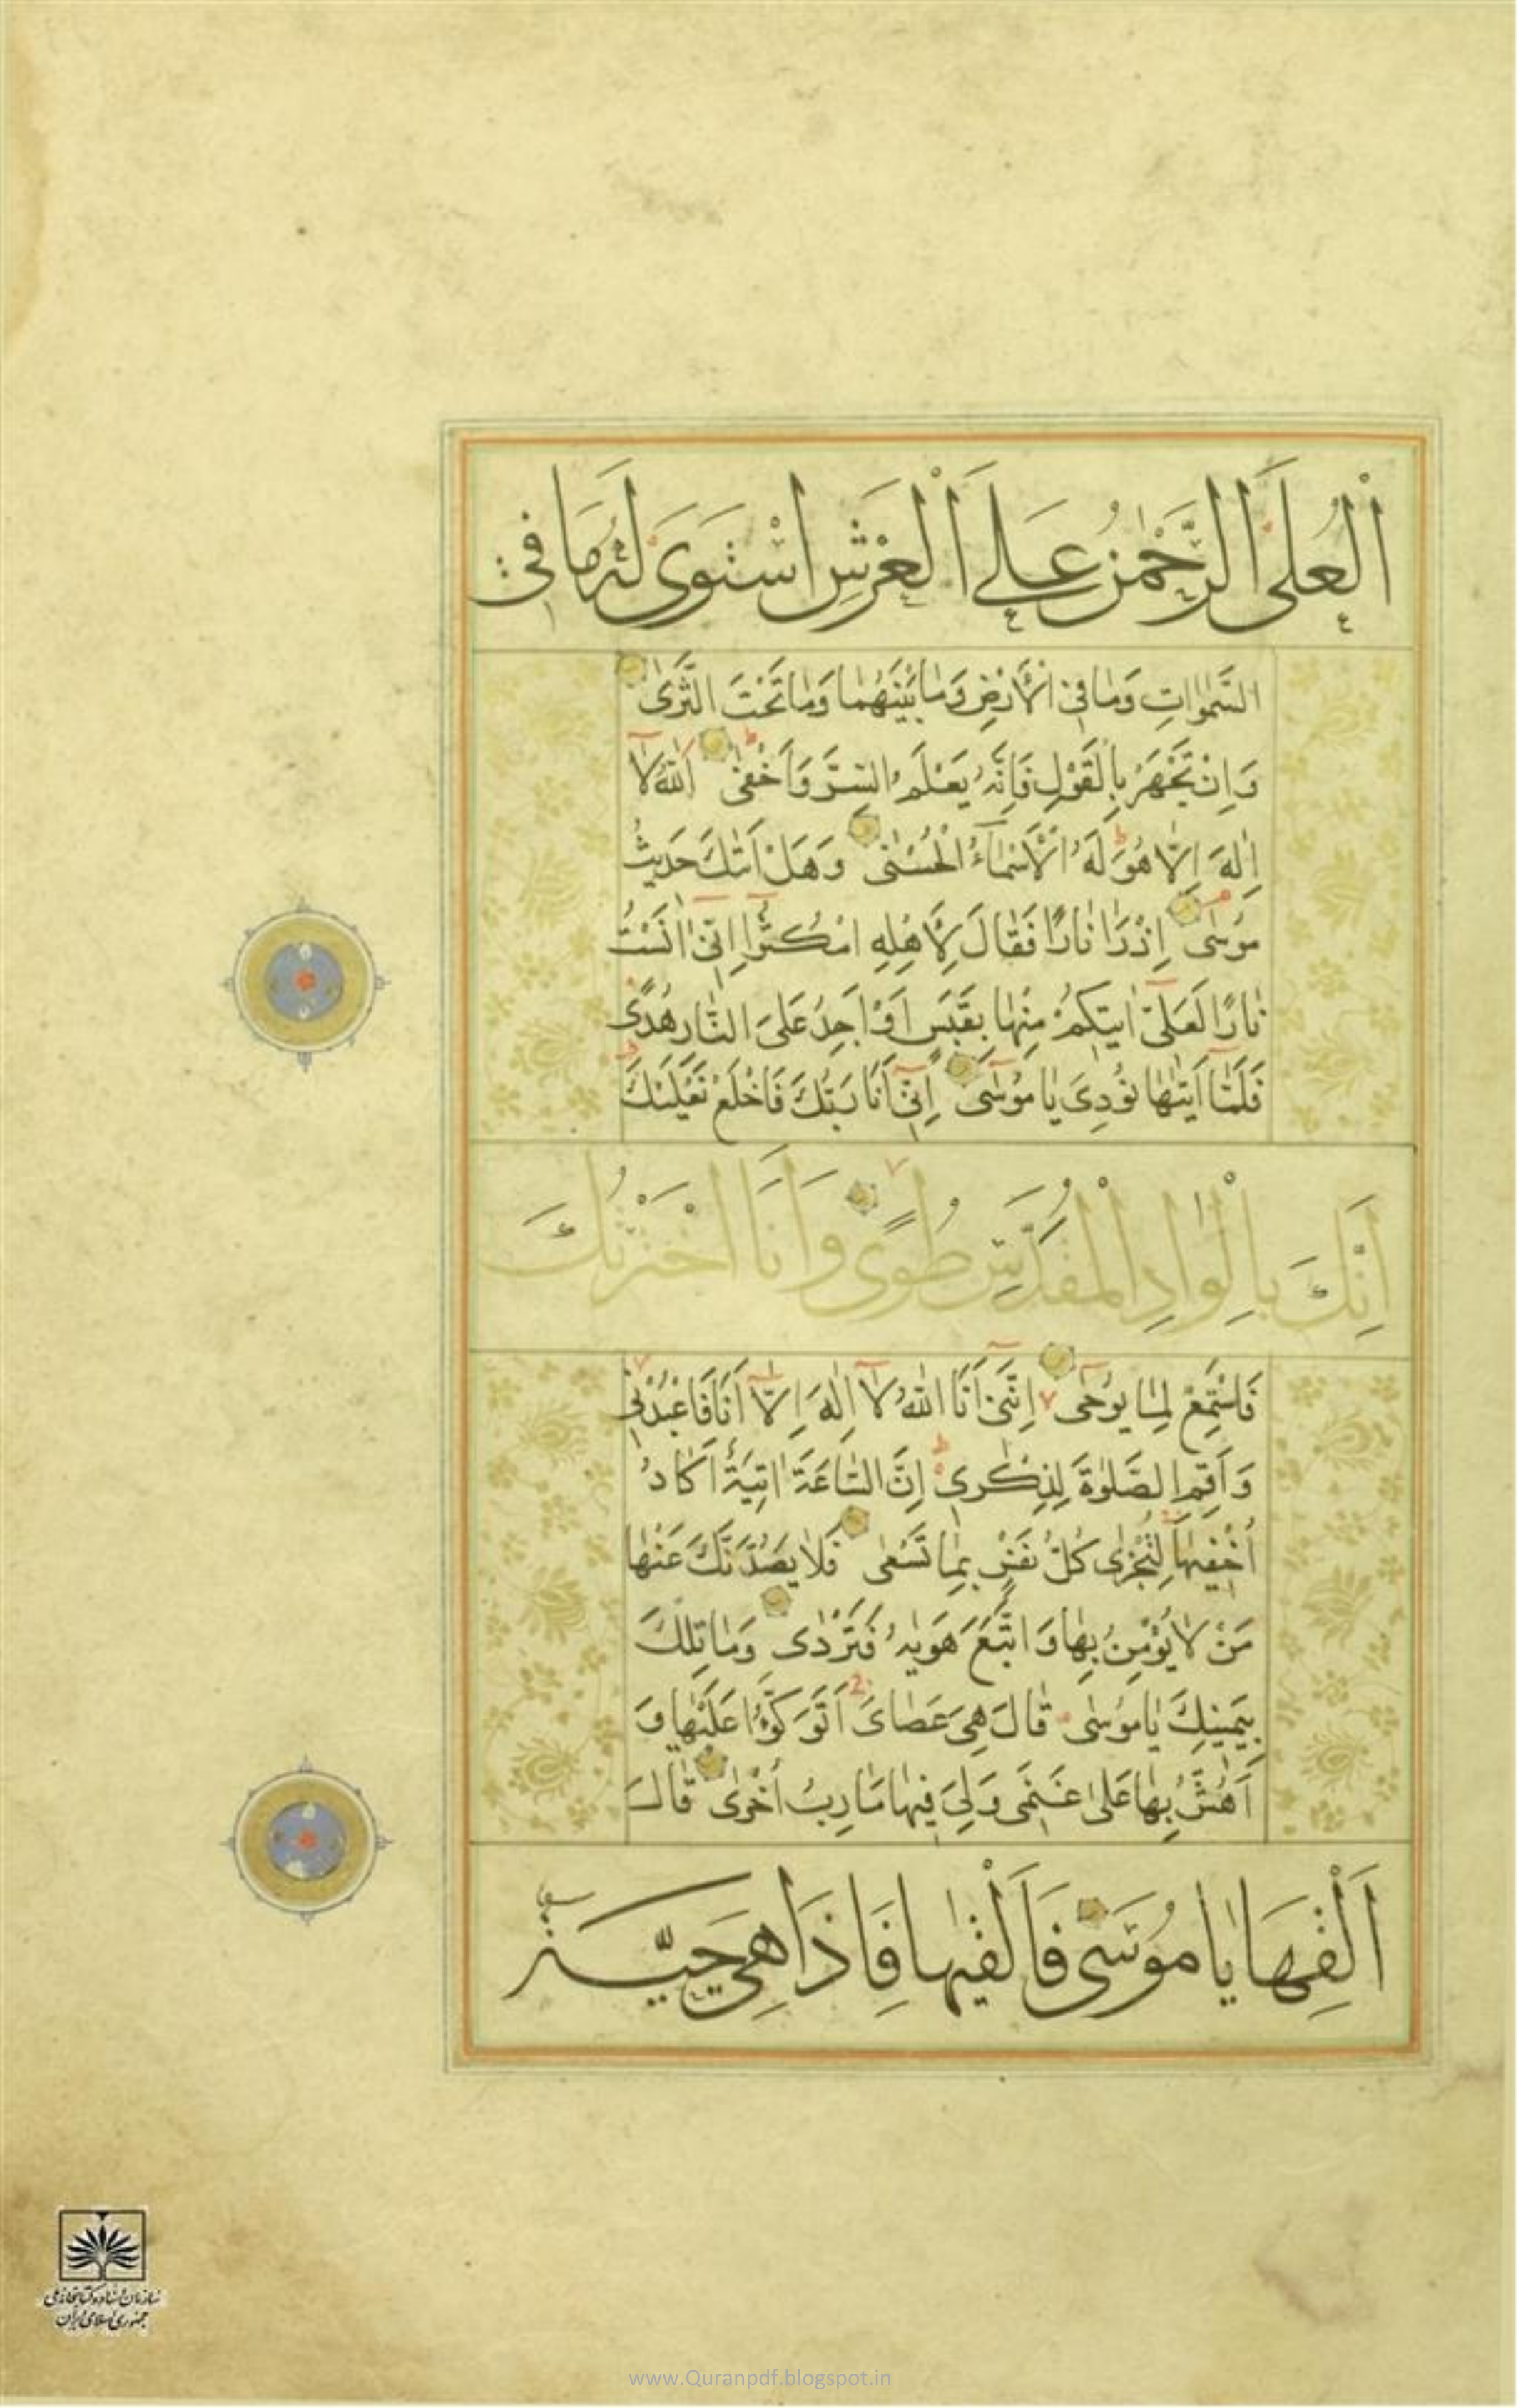 اَلْعُلَىٰ اَلرَّحْمٰنُ عَلَى اَلْعَرْشِ اسْتَوَىٰ لَهُ مَا فِي
السَّمٰوَاتِ وَمَا فِي الْأَرْضِ وَمَا بَيْنَهُمَا وَمَا تَحْتَ الثَّرَىٰ
وَاِنْ تَجْهَرْ بِالْقَوْلِ فَاِنَّهُ يَعْلَمُ السِّرَّ وَاَخْفٰى اَللّٰهُ لَا
اِلٰهَ اِلَّا هُوَ لَهُ الْأَسْمَاءُ الْحُسْنٰى وَهَلْ اَتٰكَ حَدِيثُ
مُوسٰى اِذْ رَاٰ نَارًا فَقَالَ لِأَهْلِهِ امْكُثُوا اِنِّي اٰنَسْتُ
نَارًا لَعَلِّي اٰتِيكُمْ مِنْهَا بِقَبَسٍ اَوْ اَجِدُ عَلَى النَّارِ هُدًى
فَلَمَّا اَتٰيهَا نُودِيَ يَا مُوسٰى اِنِّي اَنَا رَبُّكَ فَاخْلَعْ نَعْلَيْكَ
اِنَّكَ بِالْوَادِ الْمُقَدَّسِ طُوًى وَاَنَا اخْتَرْتُكَ
فَاسْتَمِعْ لِمَا يُوحٰى اِنَّنِي اَنَا اللّٰهُ لَا اِلٰهَ اِلَّا اَنَا فَاعْبُدْنِي
وَاَقِمِ الصَّلٰوةَ لِذِكْرِي اِنَّ السَّاعَةَ اٰتِيَةٌ اَكَادُ
اُخْفِيهَا لِتُجْزٰى كُلُّ نَفْسٍ بِمَا تَسْعٰى فَلَا يَصُدَّنَّكَ عَنْهَا
مَنْ لَا يُؤْمِنُ بِهَا وَاتَّبَعَ هَوٰيهُ فَتَرْدٰى وَمَا تِلْكَ
بِيَمِينِكَ يَا مُوسٰى قَالَ هِيَ عَصَايَ اَتَوَكَّؤُا عَلَيْهَا وَ
اَهُشُّ بِهَا عَلٰى غَنَمِي وَلِيَ فِيهَا مَاٰرِبُ اُخْرٰى قَالَ
اَلْقِهَا يَا مُوسٰى فَاَلْقٰيهَا فَاِذَا هِيَ حَيَّةٌ
سازمان اسناد و کتابخانه ملی
جمهوری اسلامی ایران
www.Quranpdf.blogspot.in